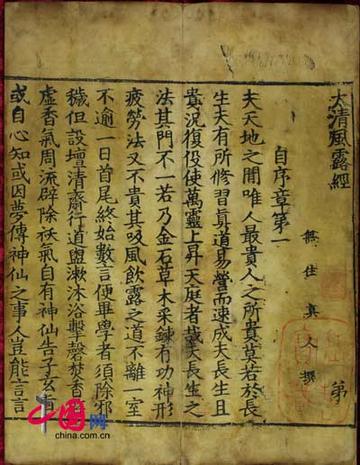 太清風露經
無住真人撰
自序章第一
夫天地之間唯人最貴人之所貴莫若於長
生夫有所修習真道易營而速成夫長生且
貴況復役使萬靈上昇天庭者哉夫長生之
法其門不一若乃金石草木采鍊有功神形
疲勞法又不貴其吸風飲露之道不離一室
不逾一日首尾終始數言便畢學者須除邪
穢但設壇清齋行道盥漱沐浴擊磬焚香
虛香氣周流辟除祅氣自有神仙告子玄
或自心知或因夢傳神仙之事人豈能言言
中国网
china.com.cn